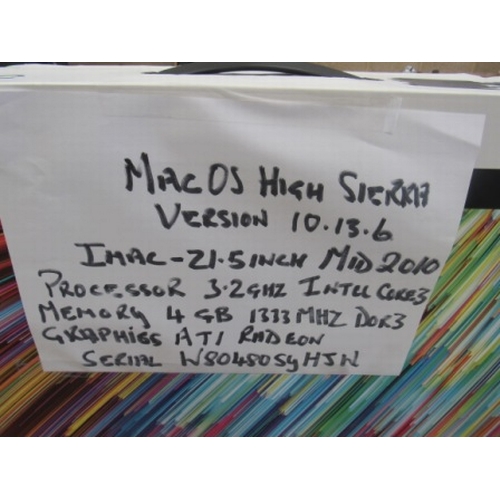 MAC OS HIGH SIERRA
VERSION 10.13.6
IMAC-21.5 INCH MID 2010
PROCESSOR 3.2GHZ INTEL CORE3
MEMORY 4 GB 1333 MHZ DDR3
GRAPHICS ATI RADEON
SERIAL W80480SYHJW